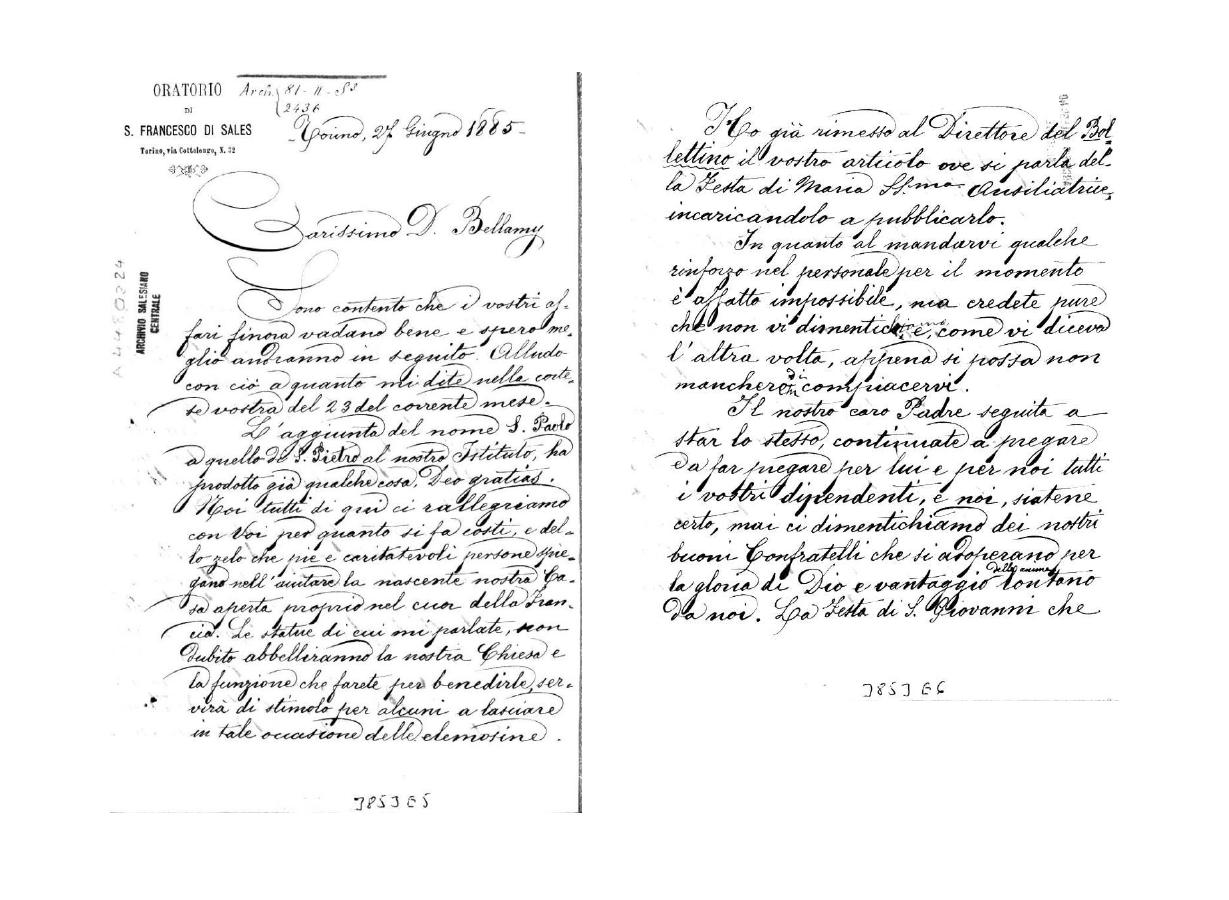 ORATORIO
DI
S. FRANCESCO DI SALES
Torino, via Cottolengo, N. 32
Arch. 81-II-S3
2436
Torino, 27 Giugno 1885-
Carissimo D. Bellamy
Sono contento che i vostri af-
fari finora vadano bene e spero me-
glio andranno in seguito. Alludo
con ciò a quanto mi dite nella corte-
se vostra del 23 del corrente mese.
L'aggiunta del nome S. Paolo
a quello di S. Pietro al nostro Istituto, ha
prodotto già qualche cosa. Deo gratias.
Noi tutti di qui ci rallegriamo
con Voi per quanto si fa costì, e del-
lo zelo che pie e caritatevoli persone spie-
gano nell'aiutare la nascente nostra Ca-
sa aperta proprio nel cuor della Fran-
cia. Le statue di cui mi parlate, non
dubito abbelliranno la nostra Chiesa e
la funzione che farete per benedirle, ser-
virà di stimolo per alcuni a lasciare
in tale occasione delle elemosine.
ARCHIVIO SALESIANO
CENTRALE
A4480224
3853 E5
Ho già rimesso al Direttore del Bol-
lettino il vostro articolo ove si parla del-
la Festa di Maria SS.ma Ausiliatrice,
incaricandolo a pubblicarlo.
In quanto al mandarvi qualche
rinforzo nel personale per il momento
è affatto impossibile, ma credete pure
che non vi e, come vi diceva
l'altra volta, appena si possa non
mancherò di compiacervi.
Il nostro caro Padre seguita a
star lo stesso, continuate a pregare
e a far pregare per lui e per noi tutti
i vostri dipendenti, e noi, siatene
certo, mai ci dimentichiamo dei nostri
buoni Confratelli che si adoperano per
la gloria di Dio e vantaggio delle anime lontano
da noi. La Festa di S. Giovanni che
3853 E6